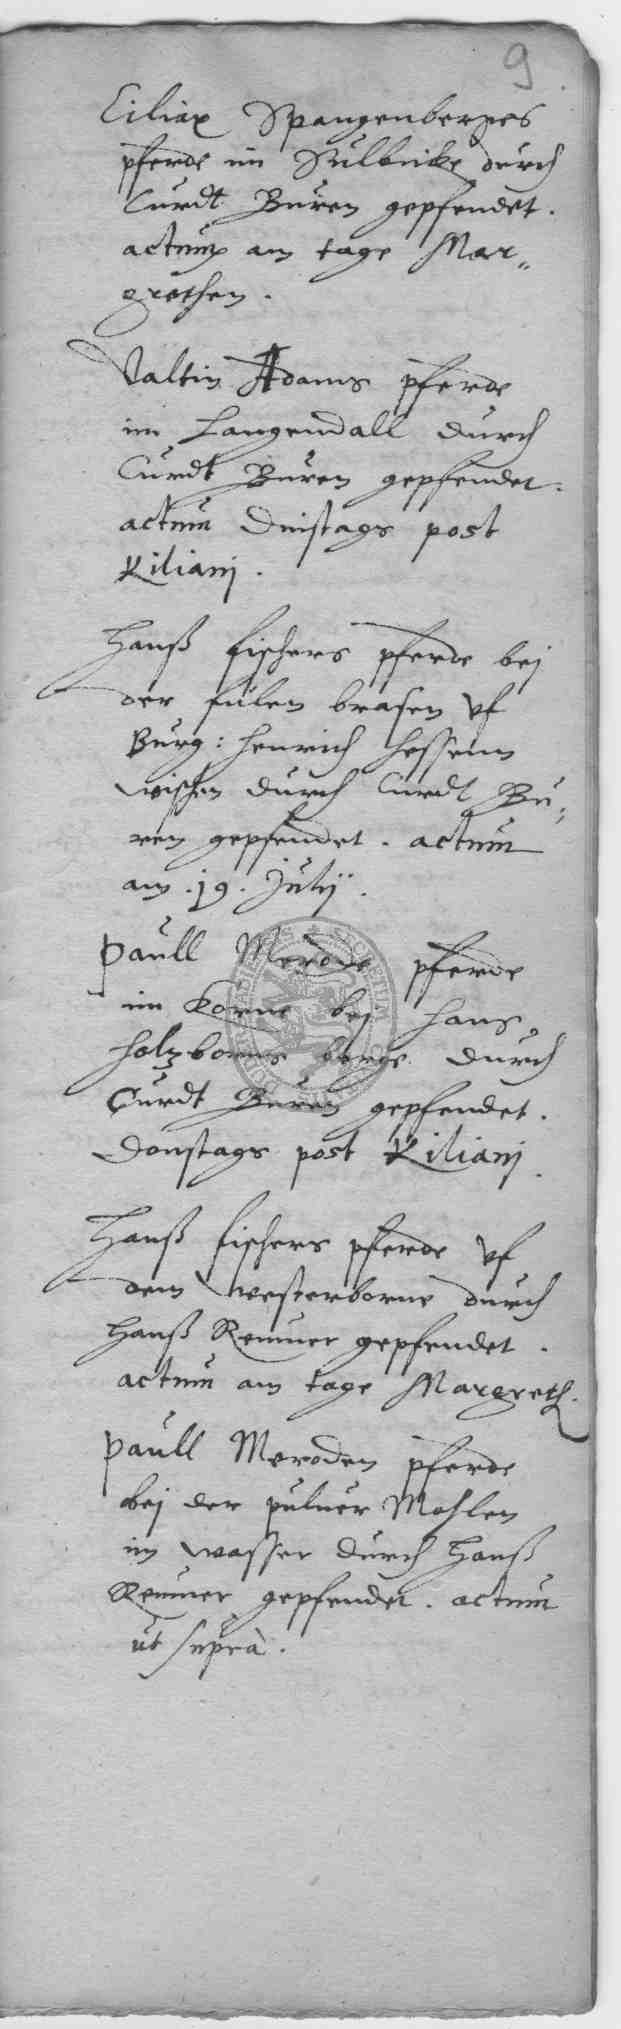 9
Ciliax Spangenberges
pferde im Sulbicke durch
Curdt Buren gepfendet.
actum am tage Mar„
grethen.
Valtin Adams pferde
im Langendall durch
Curdt Buren gepfendet.
actum Dinstags post
Kiliani.
Hanß fischers pferde bej
der fulen brasen vf
Burg: Henrich Hessenn
wischen durch Curdt Bu„
ren gepfendet. actum
am .19. Julij.
Paull Meroden pferde
im Korne bej Hans
Holzborns berge durch
Curdt Buren gepfendet.
Donstags post Kiliani.
Hanß fischers pferde vf
dem westerborne durch
Hanß Remmer gepfendet.
actum am tage Margreth.
Paull Meroden pferde
bej der puluer Mohlen
im wasser durch Hanß
Remmer gepfendet. actum
ut supra.